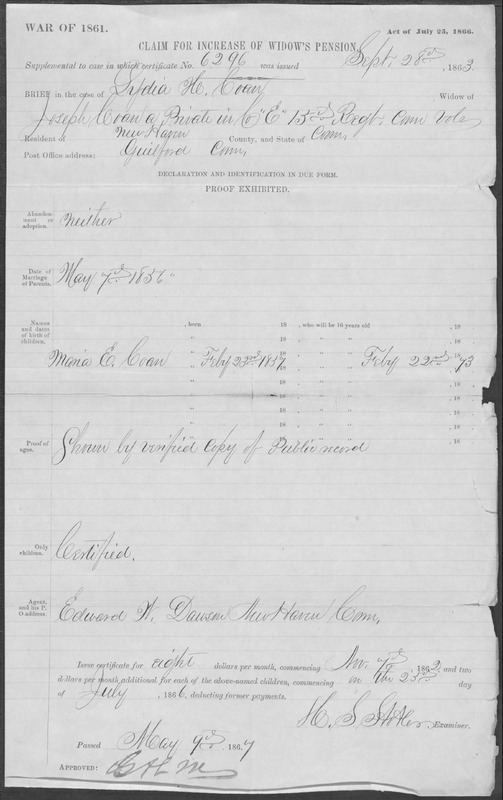 WAR OF 1861.
Act of July 25, 1866.
CLAIM FOR INCREASE OF WIDOW'S PENSION,
Supplemental to case in which certificate No. 6296 was issued Sept. 28d, 1863.
BRIEF in the case of Lydia H. Coan, Widow of
Joseph Coan a Private in Co "E" 15 Regt. Conn Vols
Resident of New Haven County, and State of Conn,
Post Office address: Guilford Conn,
DECLARATION AND IDENTIFICATION IN DUE FORM.
PROOF EXHIBITED.
Abandonment or adoption. Neither
Date of Marriage of Parents. May 7d 1856"
Names and dates of birth of children.
, born 18 , who will be 16 years old , 18
Maria E. Coan " Feby 23d 1857 " " Feby 22nd 1873
Proof of ages. Shown by verified copy of Public record
Only children. Certified.
Agent, and his P. O. address. Edward W. Dawson New Haven Conn,
Issue certificate for eight dollars per month, commencing Nov. 7d, 1862, and two
dollars per month additional for each of the above-named children, commencing on the 25 day
of July, 1866, deducting former payments.
H. S. Examiner.
Passed May 9d 1867
APPROVED: